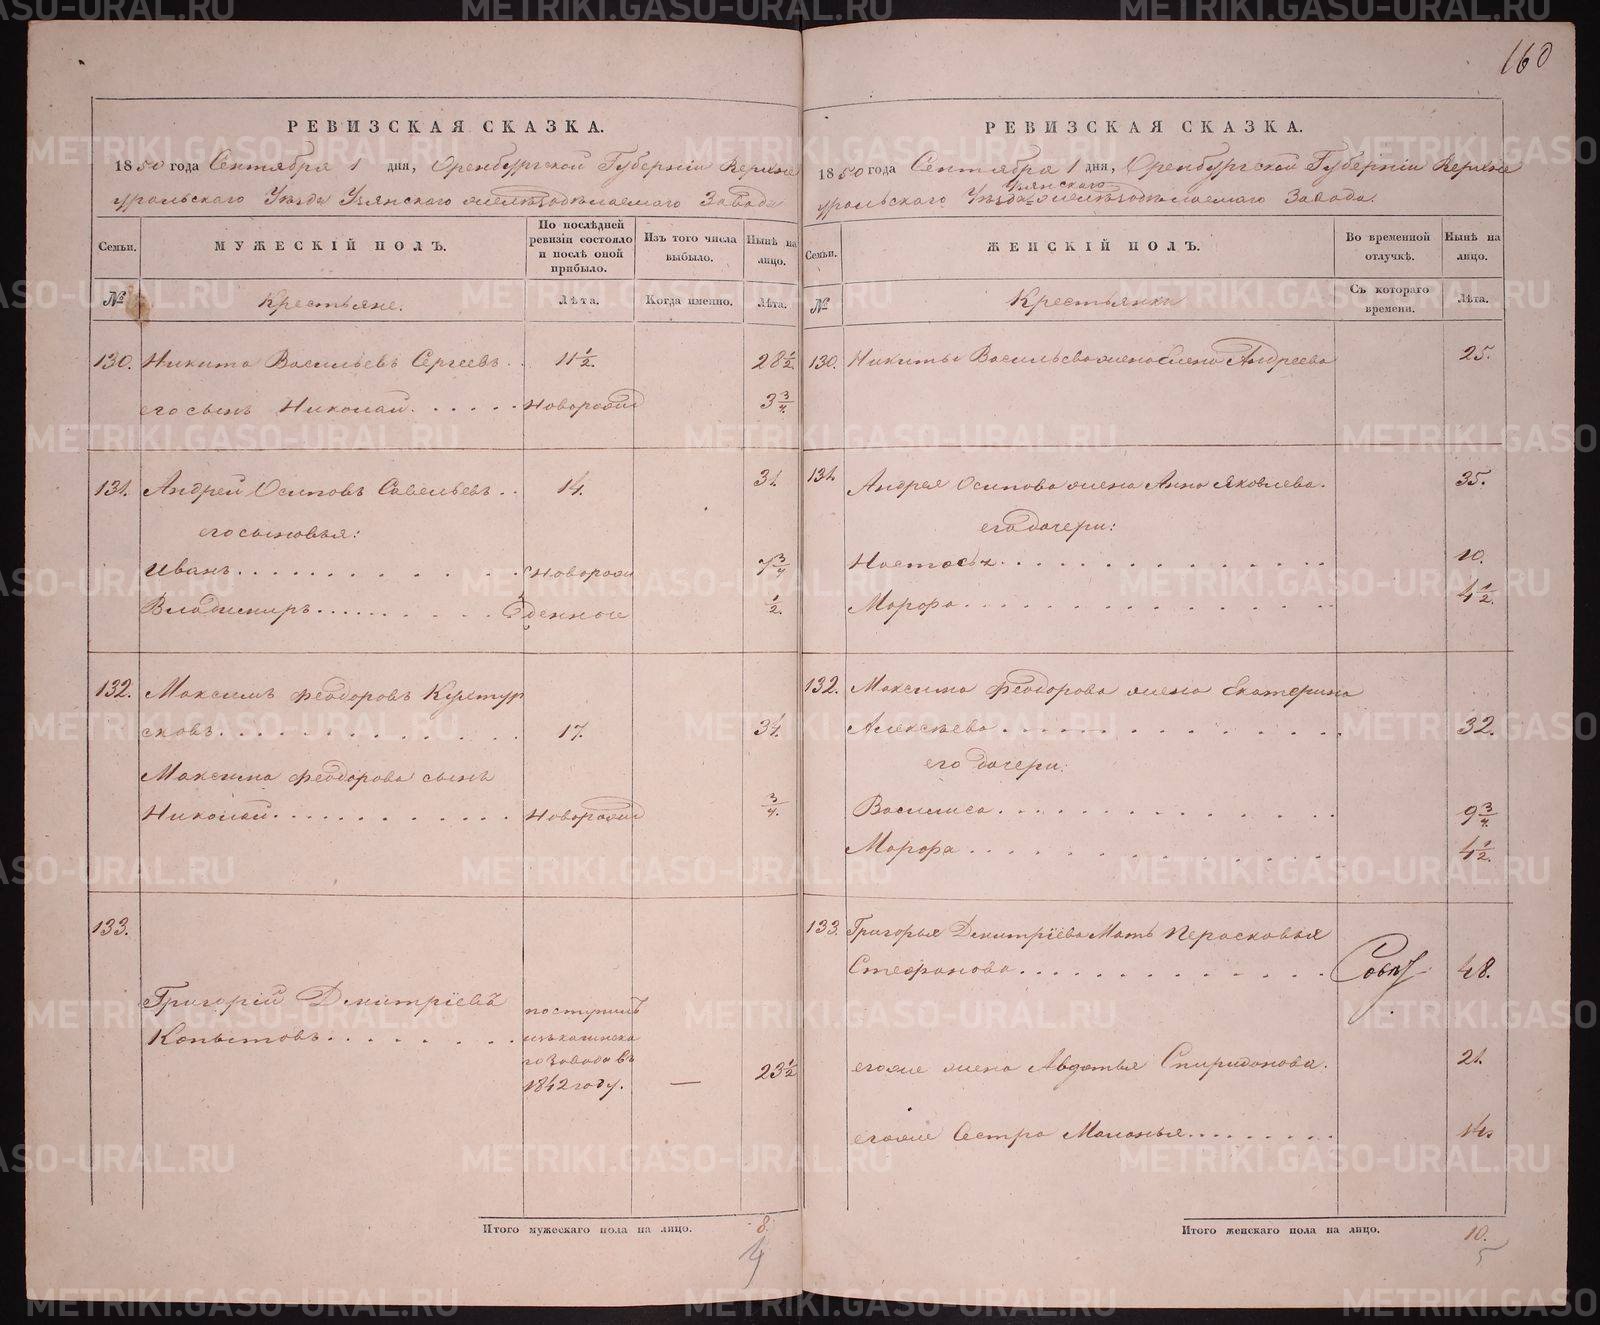 160
РЕВИЗСКАЯ СКАЗКА.
1850 года Сентября 1 дня, Оренбургской Губернiи Верхне
уральского Уѣзда Узянского желѣзодѣлаемаго Завода
Семьи.
МУЖЕСКIЙ ПОЛЪ.
По послѣдней ревизiи состояло и послѣ оной прибыло.
Изъ того числа выбыло.
Нынѣ на лицо.
№
Крестьяне.
Лѣта.
Когда именно.
Лѣта.
130. Никита Васильевъ Сергеевъ . . 11 1/2. 28 1/2.
его сынъ Николай . . . . . Новорожд 3 3/4.
131. Андрей Осиповъ Савельевъ . . 14. 31.
его сыновья:
Иванъ . . . . . . . . . Новорож 7 3/4
Владимиръ . . . . . . . . . денные 1/2.
132. Максимъ Феодоровъ
сковъ . . . . . . . . . 17. 34.
Максима Феодорова сынъ
Николай . . . . . . . . . Новорожд 3/4.
133.
Григорiй Дмитрiевъ
Копытовъ . . . . . . . .
поступилъ
изъ кагинска
го завода въ
1842 году. — 23 1/2
Итого мужескаго пола на лицо. 8.
4
РЕВИЗСКАЯ СКАЗКА.
1850 года Сентября 1 дня, Оренбургской Губернiи Верхне
Узянскаго
уральского Уѣзда желѣзодѣлаемаго Завода.
Семьи.
ЖЕНСКIЙ ПОЛЪ.
Во временной отлучкѣ.
Нынѣ на лицо.
№
Крестьянки
Съ котораго времени.
Лѣта.
130. Никиты Васильева жена Елена Андреева 25.
131. Андрея Осипова жена Анна Яковлева. 35.
его дочери:
Настасья . . . . . . . . . 10.
Марфа . . . . . . . . . 4 1/2.
132. Максима Феодорова жена Екатерина
Алексѣева . . . . . . . . . 32.
его дочери:
Василиса . . . . . . . . . 9 3/4.
Марфа . . . . . . . . . 4 1/2.
133. Григорья Дмитрiева Мать Перасковья
Стефанова . . . . . . . . . 48.
егоже жена Авдотья Спиридонова. 21.
егоже Сестра Маланья . . . . . . . . 14.
Итого женскаго пола на лицо. 10.
5
METRIKI.GASO-URAL.RU